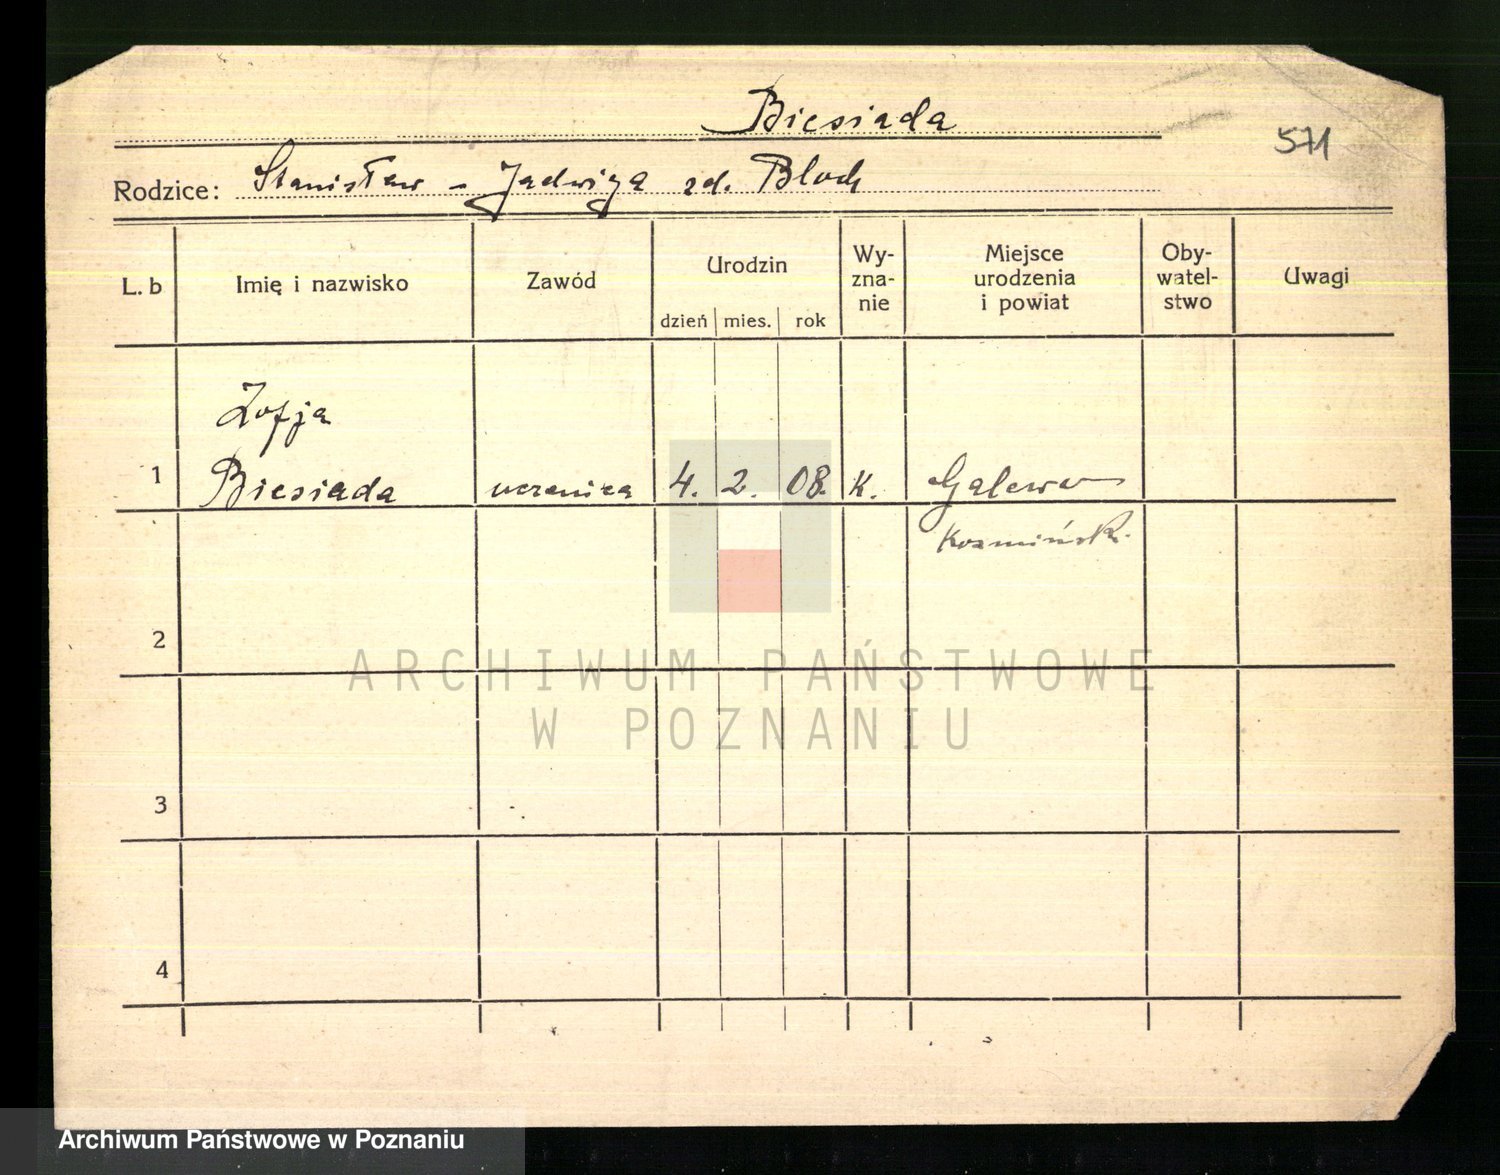 Biesiada
571
Rodzice: Stanisław - Jadwiga zd. Bloch
L. b
Imię i nazwisko
Zawód
Urodzin
dzień mies. rok
Wy-
zna-
nie
Miejsce
urodzenia
i powiat
Oby-
watel-
stwo
Uwagi
Zofja
1 Biesiada uczenica 4. 2. 08. K. Galewo
Kozmińsk.
2
ARCHIWUM PAŃSTWOWE
W POZNANIU
3
4
Archiwum Państwowe w Poznaniu